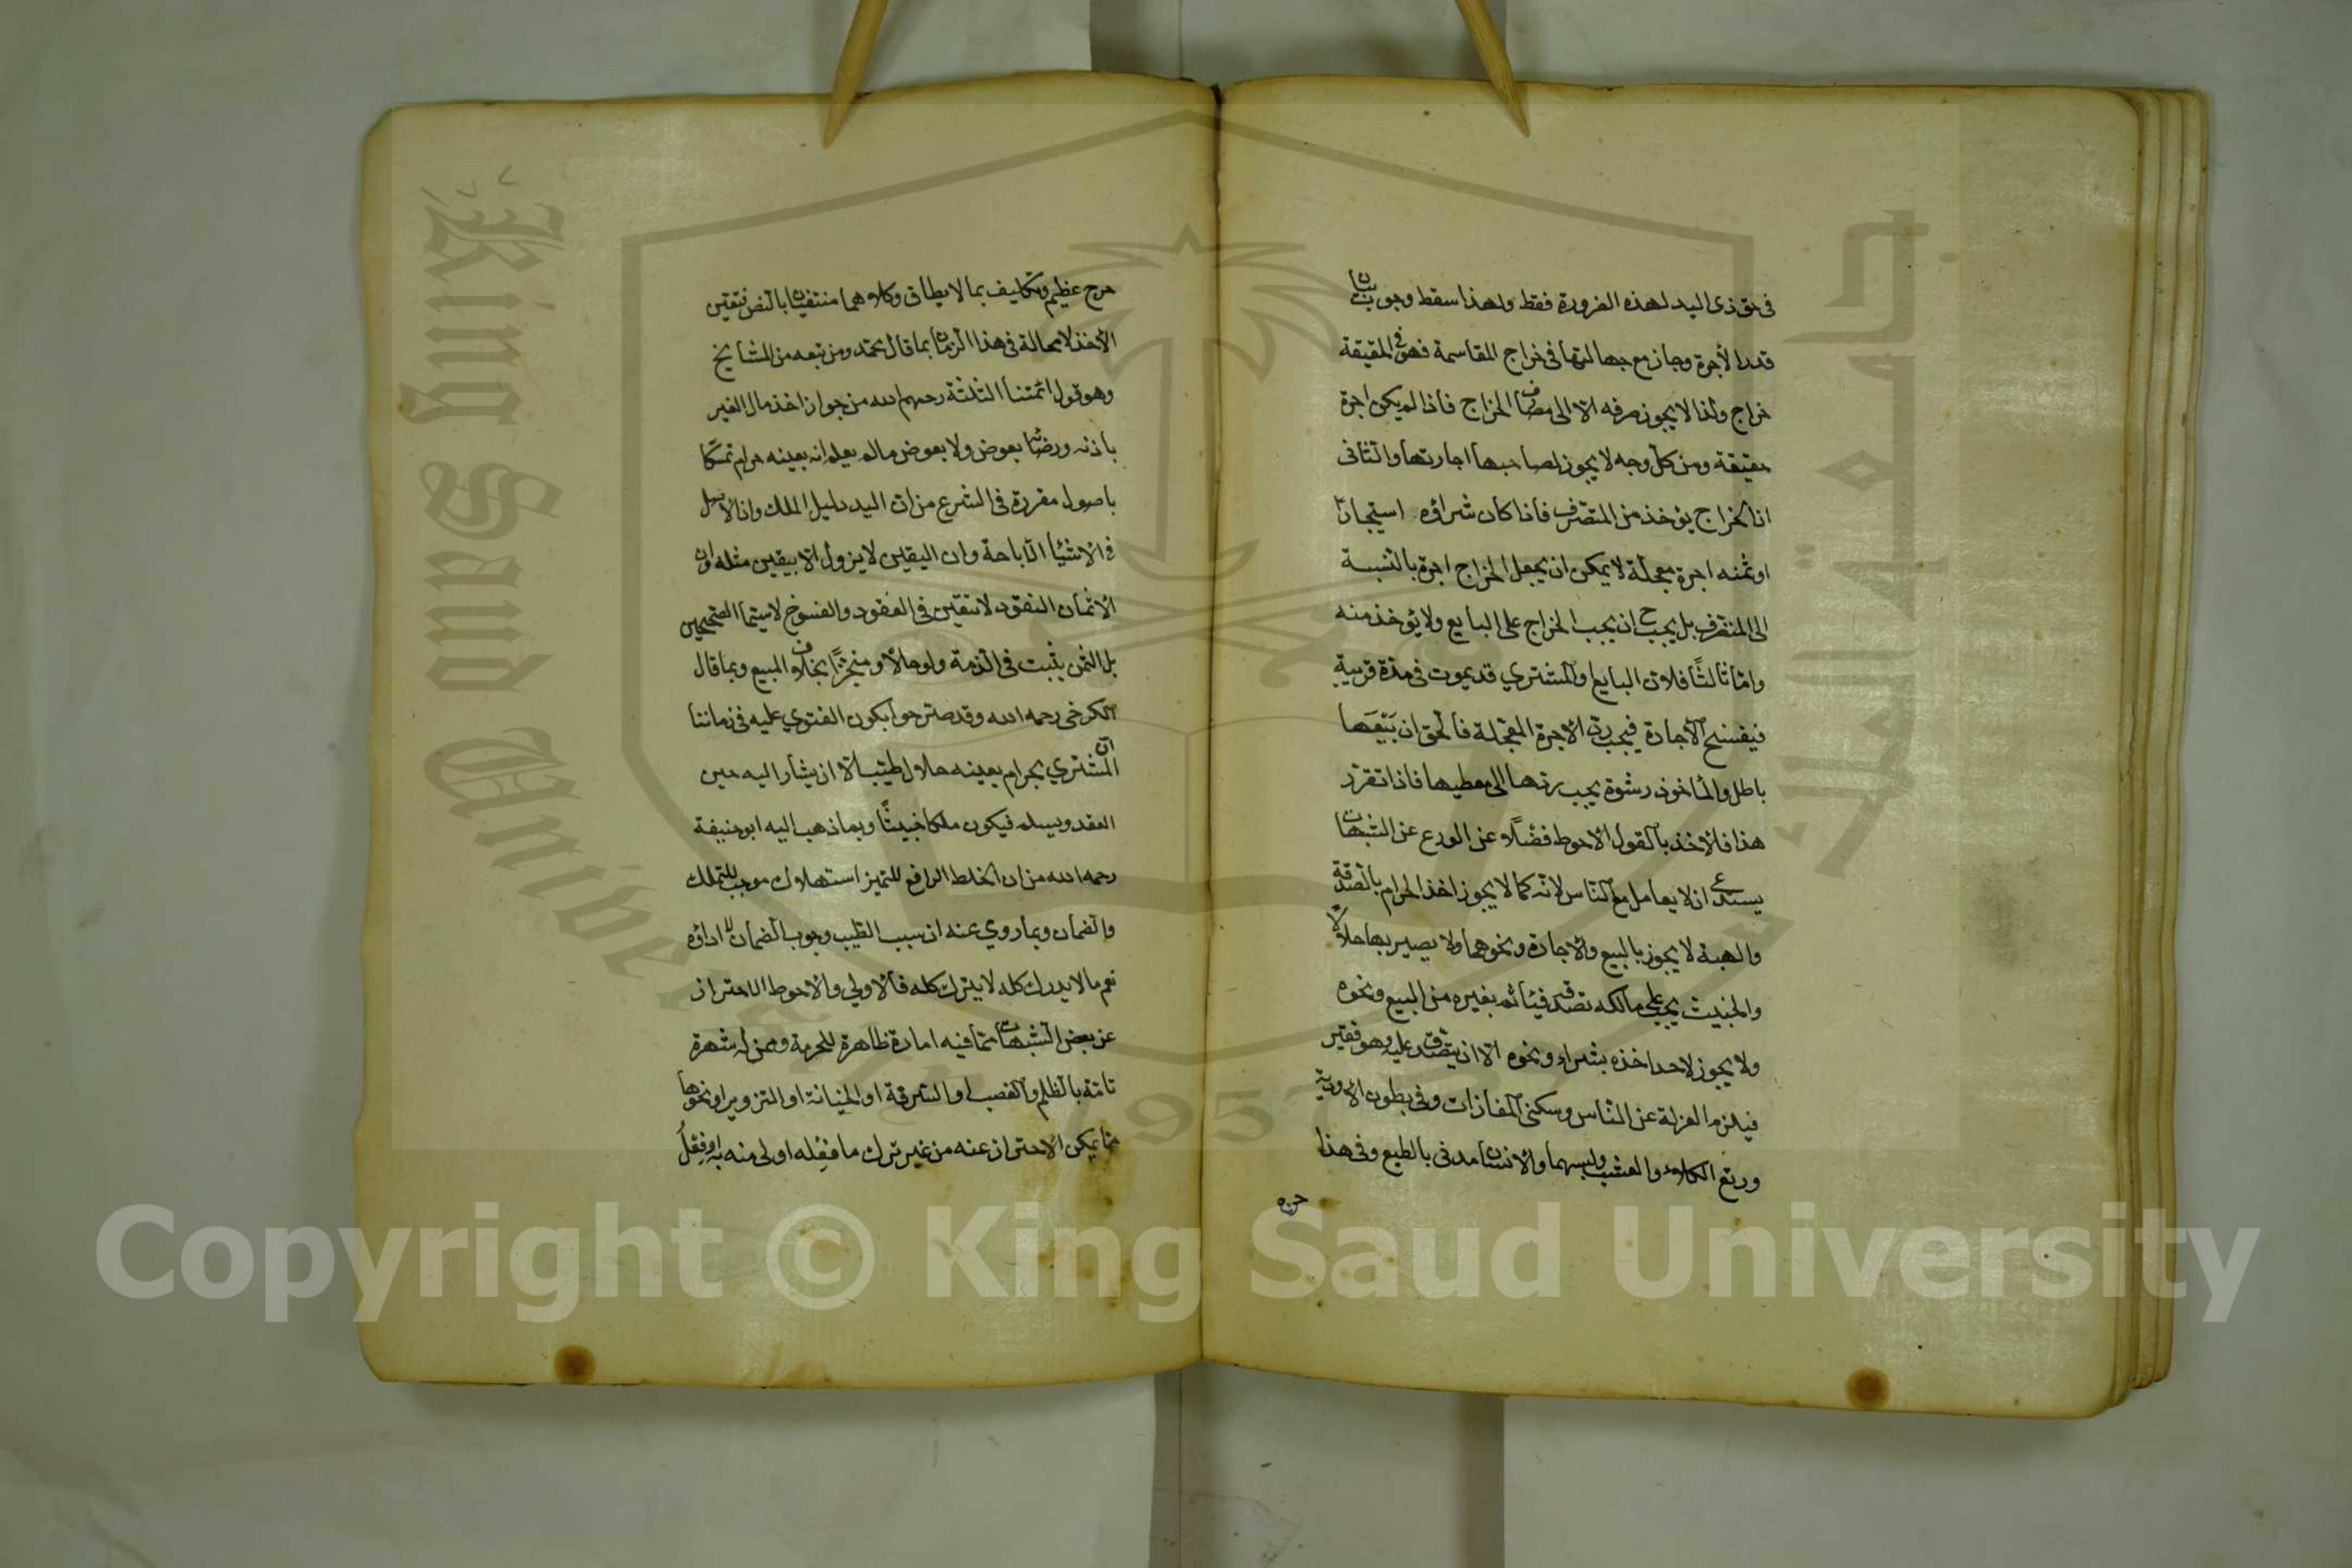 في حق ذي اليد لهذه الضرورة فقط ولهذا سقط وجوب بيان
قدر الأجرة وجاز مع جهالتها في خراج المقاسمة فهو في الحقيقة
خراج ولذا لا يجوز صرفه الا الى مصارف الخراج فاذا لم يكن اجرة
حقيقة ومن كل وجه لا يجوز لصاحبها اجارتها والثاني
ان الخراج يؤخذ من المتصرف فاذا كان شراؤه استيجارا
او ثمنه اجرة معجلة لا يمكن ان يجعل الخراج اجرة بالنسبة
الى المتصرف بل يجب ح ان يجب الخراج على البايع ولا يؤخذ منه
واما ثالثًا فلان البايع والمشتري قد يموت في مدة قريبة
فيفسخ الاجارة فيجب رد الاجرة المعجلة فالحق ان بَيْعَها
باطل والمأخوذ رشوة يجب ردها الى معطيها فاذا تقرر
هذا فالأخذ بالقول الاحوط فضلًا عن الورع عن الشبهات
يستدعي ان لا يعامل مع الناس لانه كما لا يجوز اخذ الحرام بالصدقة
والهبة لا يجوز بالبيع والاجارة ونحوهما ولا يصير بها حلالا
والخبيث يجب على مالكه تصدقه فيأثم بغيره من البيع ونحوه
ولا يجوز لاحد اخذه بشراء ونحوه الا ان يتصدق عليه وهو فقير
فيلزم العزلة عن الناس وسكنى المفازات وفي بطون الاودية
ورتع الكلاء والعشب ولبسهما والانسان مدني بالطبع وفي هذا
حرج
حرج عظيم وتكليف بما لا يطاق وكلاهما منتفيان بالنص فتعين
الأخذ لا محالة في هذا الزمان بما قال محمد ومن تبعه من المشايخ
وهو قول ائمتنا الثلثة رحمهم الله من جواز اخذ مال الغير
باذنه ورضائه بعوض ولا بعوض ما لم يعلم انه بعينه حرام تمسكا
باصول مقررة في الشرع من ان اليد دليل الملك وان الأصل
في الاشياء الاباحة وان اليقين لا يزول الا بيقين مثله وان
الاثمان النقود لا تتعين في العقود والفسوخ لا سيما الصحيحين
بل الثمن يثبت في الذمة ولو حالًا ومنجزًا بخلاف المبيع وبما قال
الكرخي رحمه الله وقد صرحوا بكون الفتوي عليه في زماننا
ان المشتري بحرام بعينه حلال طيب الا ان يشار اليه حين
العقد ويسلم فيكون ملكا خبيثًا وبما ذهب اليه ابو حنيفة
رحمه الله من ان الخلط الرافع للتميز استهلاك موجب للتملك
والضمان وبما روي عنه ان سبب الطيب وجوب الضمان لا اداؤه
نعم ما لا يدرك كله لا يترك كله فالاولي والاحوط الاحتراز
عن بعض الشبهات مما فيه امارة ظاهرة للحرمة وممن له شهرة
تامة بالظلم والغصب او السرقة او الخيانة او التزوير او نحوها
مما يمكن الاحتراز عنه من غير ترك ما فعله اولى منه به او فِعْلُ
Copyright © King Saud University
King Saud University
1957